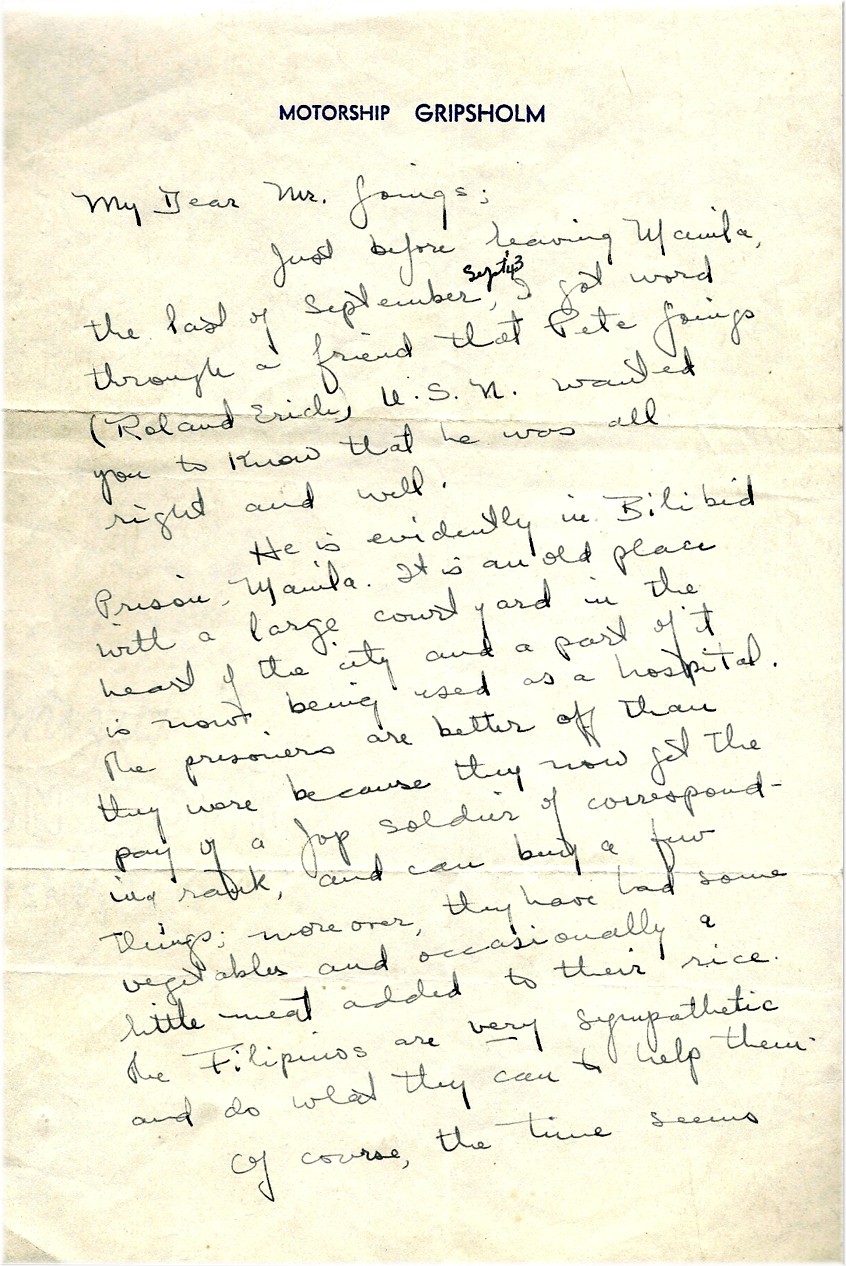 MOTORSHIP GRIPSHOLM
My Dear Mr. Goings;
Just before leaving Manila,
Sept 43
the last of September, I got word
through a friend that Pete Goings
(Roland Erich) U.S.N. wanted
you to know that he was all
right and well.
He is evidently in Bilibid
Prison, Manila. It is an old place
with a large court yard in the
heart of the city and a part of it
is now being used as a hospital.
The prisoners are better off than
they were because they now get the
pay of a Jap soldier of correspond-
ing rank, and can buy a few
things; moreover, they have had some
vegetables and occasionally a
little meat added to their rice.
The Filipinos are very sympathetic
and do what they can to help them.
Of course, the time seems